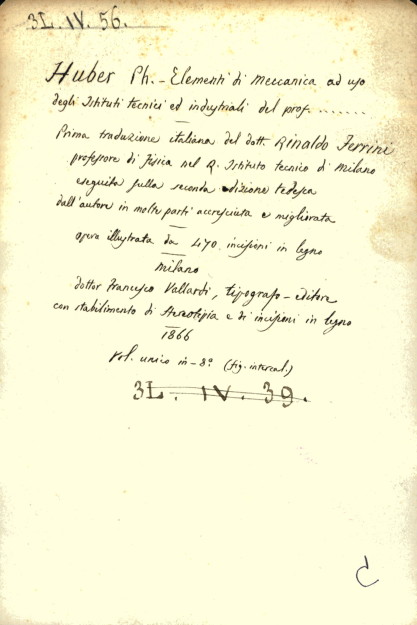 3L. IV. 56.
Huber Ph. - Elementi di Meccanica ad uso
degli Istituti tecnici ed industriali del prof. .......
Prima traduzione italiana del dott. Rinaldo Ferrini
professore di fisica nel R. Istituto tecnico di Milano
eseguita sulla seconda edizione tedesca
dall'autore in molte parti accresciuta e migliorata
opera illustrata da 470 incisioni in legno
Milano
dottor Francesco Vallardi, tipografo-editore
con stabilimento di stereotipia e di incisioni in legno
1866
Vol. unico in-8° (fig. intercal.)
3L. IV. 39.